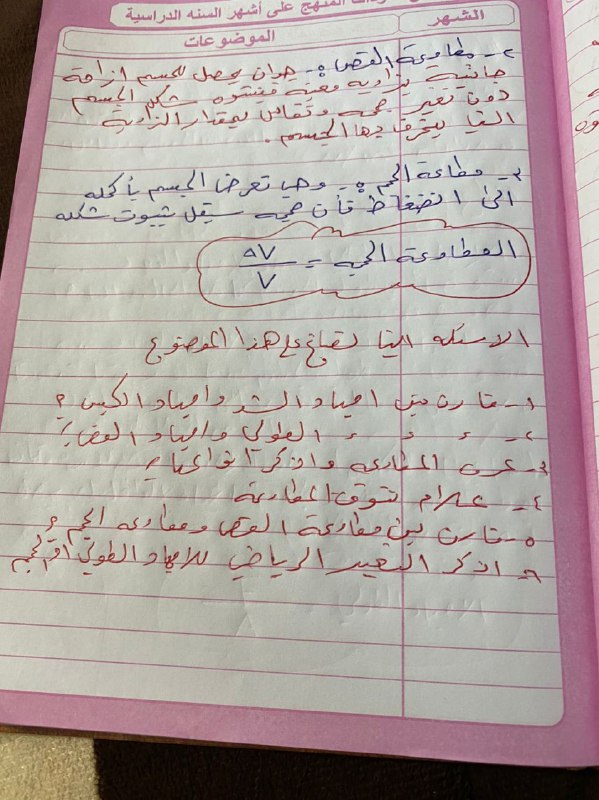 المنهج على أشهر السنه الدراسية
الشهر
الموضوعات
٢- مطاوعة القص :- حيان يحصل للجسم ازاحة
جانبية بزاوية معينه فيتشوه شكل الجسم
دون تغير حجمه وتقاس بمقدار الزاوية
التيا ينحرف بها الجسم .
٣- مطاوعة الحجم :- وهيا تعرض الجسم بأكمله
الى انضغاط فأن حجمه سيقل بثبوت شكله
المطاوعة الحجميه = ΔV / V
الاسئله التيا تصاغ على هذا الموضوع
١- قارن بين اجهاد الشد واجهاد الكبس ؟
٢- ء ء ء الطولي واجهاد القص ؟
٣- عرف المطاوعه واذكر انواعها ؟
٤- علام تتوقف المطاوعة
٥- قارن بين مطاوعة القص ومطاوعه الحجم ؟
٦- اذكر التعبير الرياضي للاجهاد الطولي